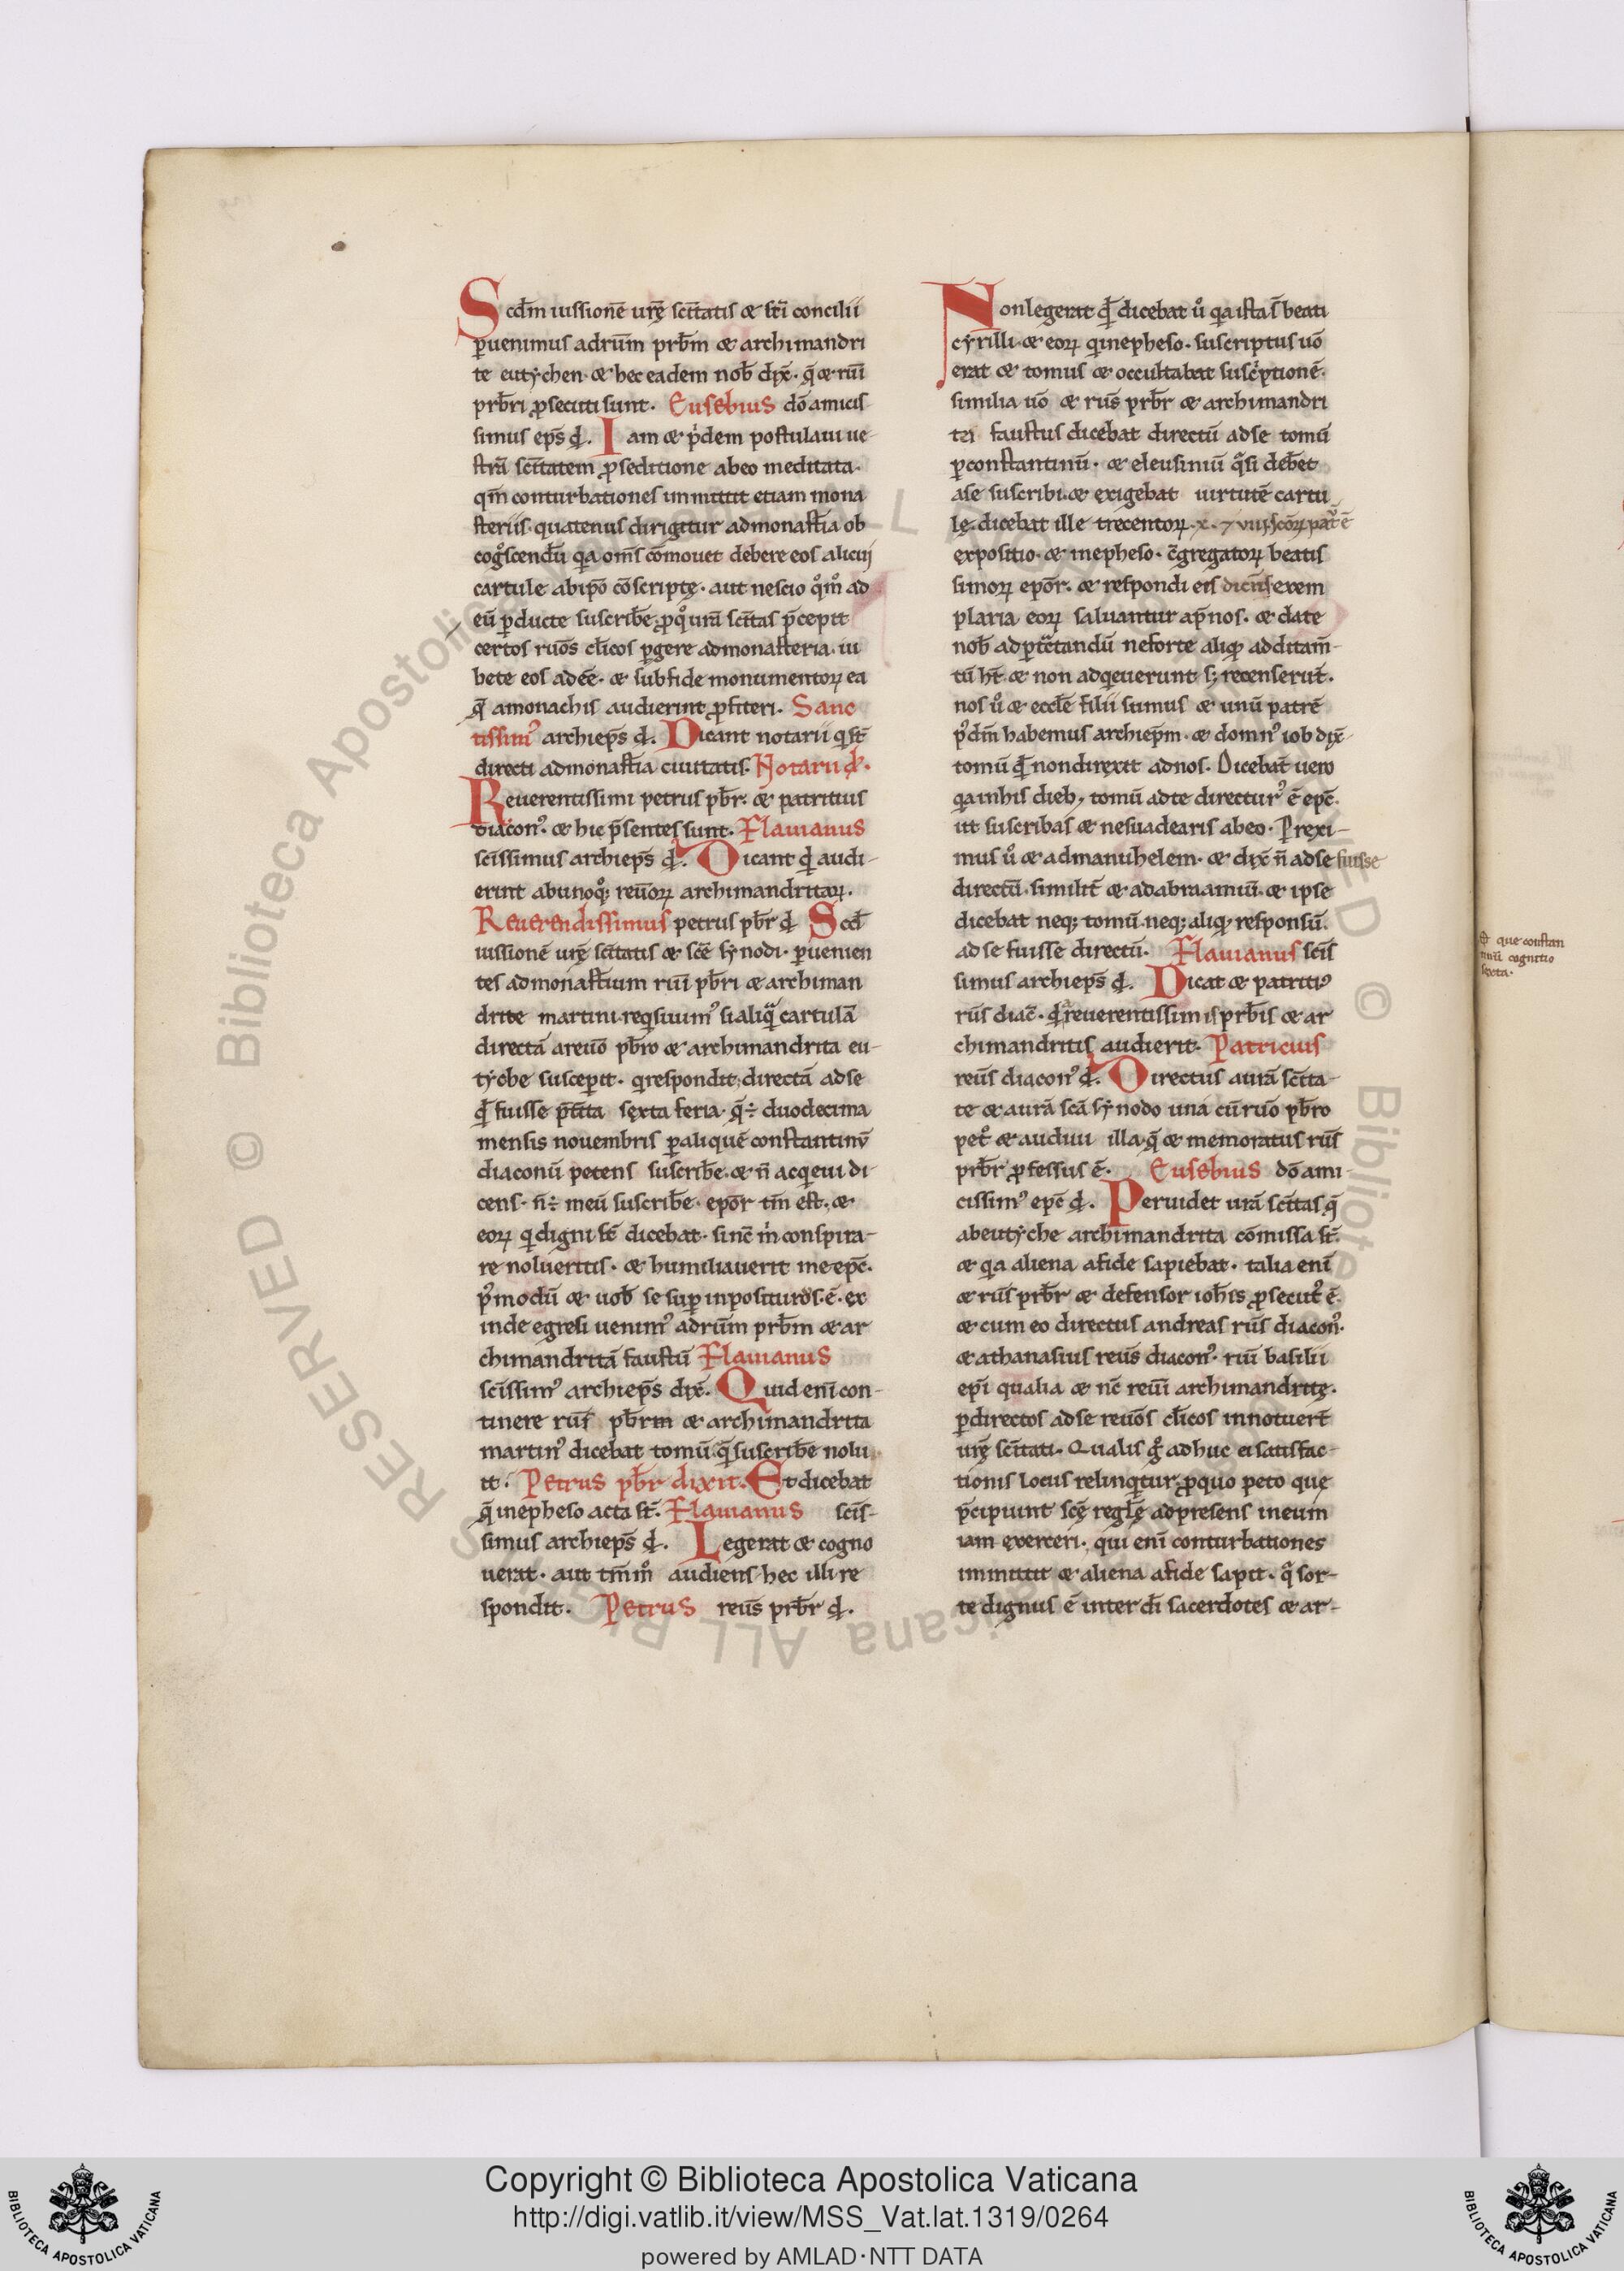 Scdm̄ iussionē urę̄ scītatis & sc̄i concilii
ꝑuenimus adrūm prb̄m & archimandri
te eutychen· & hec eadem nob̄ dix̄· q̄ & rūi
prb̄ri ꝓsecuti sunt· Eusebius dō amicis
simus ep̄s đ. Iam & pͥdem postulaui ue
strā scītatem ꝓ seditione abeo meditata·
qm̄ conturbationes inmittit etiam mona
steriis· quatenus dirigitur admonastīa ob
cogͦscend̄ū qa om̄s cōmouet debere eos alicui
cartule abip̄o cōscriptę· aut nescio qͦm̄ ad
eū ꝑducte suscribe· ꝓqͦ urā scītas p̄cepit
certos ruōs cl̄icos ꝑgere admonasteria· iu
bete eos adeē· & subfide monumentoꝝ ea
q̄ amonachis audierint ꝓfiteri· Sanc
tissim᾽ archiep̄s đ. Dicant notarii q st̄
directi admonastīa ciuitatis· Notarii đ.
Reuerentissimi petrus pb̄r· & patritius
diacon᾽· & hic p̄sentes sunt· Flauianus
scīssimus archiep̄s đ. Dicant qđ audi
erint abunoqͦꝫ reuōꝝ archimandritaꝝ·
Reuerendissimus petrus pb̄r đ Scđ
iussionē urę̄ scītatis & scē synodi· ꝑuenien
tes admonastīum rui pb̄ri & archiman
drite martini· reqsiuim᾽ si aliqͣ cartulā
directā areuō pb̄ro & archimandrita eu-
tyche susceꝑit· q respondit· directā adse
qđ fuisse p̄tita sexta feria· q̄ ÷ duodecima
mensis nouembris ꝑaliquē constantinū
diaconū petens suscribe· & n̄ acqeui di
cens· n̄ ÷ meū suscribe· epōr tm̄ est· &
eoꝝ q digni st̄ dicebat· sinē m conspira-
re nolueritis· & humiliauerit me epc̄·
p᾽modū & uob̄ se suꝑ inpositurus ē· ex
inde egressi uenim᾽ adrūm prb̄m & ar
chimandritā faustū Flauianus
scīssim᾽ archiep̄s dix̄· Quid eni con-
tinere rui pb̄rm & archimandrita
martin᾽ dicebat tomū· q̄ suscribe nolu
it· Petrus pb̄r dixit· Et dicebat
q̄ inepheso acta st̄· Flauianus scīs-
simus archiep̄s đ. Legerat & cogno
uerat· aut tm̄mͦ audiens hec illi re
spondit. Petrus reūs prb̄r đ.
Non legerat qđ dicebat uͦ qa ista s̄ beati
cyrilli· & eoꝝ q inepheso· suscriptus uō
erat & tomus & occultabat suscͥptionē·
similia uō & rūs prb̄r & archimandri
ta faustus dicebat directū adse tomū
ꝑconstantinū· & eleusiniū qͣsi debet
ase suscribi· & exigebat uirtutē cartu
lę· dicebat ille trecentoꝝ· x· ⁊ viii scōꝝ pat᾽ ē
expositio· & inepheso· c̄gregatoꝝ beatis
simoꝝ epōr· & respondi eis dicēs exem
plaria eoꝝ saluantur ap̄ nos· & date
nob̄ adꝑtc̄tandū neforte aliqđ additam-
tū ht̄ & non adqeuerunt sꝫ recenserut̄·
nos uͦ & eccle filii sumus & unū patrē
p᾽dm̄ habemus archiep̄m· & domn᾽ iob dix̄
tomū qđ nondirexit adnos· Dicebat uero
qa inhis dieb᾽ tomū adte directur᾽ ē epc̄·
ut suscribas & nesuadearis abeo· Prexi-
mus uͦ & admanuhelem· & dix̄ n̄ adse fuisse
directū· similit̄ & adabraamiū· & ipse
dicebat neqꝫ tomū· neqꝫ aliqđ responsū·
adse fuisse directū· Flauianus scīs
simus archiep̄s đ. Dicat & patriti᾽
rūs diac̄· qđ reuerentissimis prb̄is & ar
chimandritis audierit· Patricius
reūs diacon᾽ đ. Directus aurā scīta-
te & aurā scā synodo una cū ruō pb̄ro
petͦ & audiui illa· q̄ & memoratus rūs
prb̄r ꝓfessus ē· Eusebius dō ami
cissim᾽ epc̄ đ. Peruidet urā scītas q̄
abeutyche archimandrita cōmissa st̄·
& qa aliena afide sapiebat· talia eni
& rūs prb̄r & defensor ioh̄is ꝓsecut᾽ ē·
& cum eo directus andreas rūs diacon᾽·
& athanasius reūs diacon᾽· rui basilii
ep̄i qualia & nc̄ reūi archimandritę·
ꝑdirectos adse reuōs cl̄icos innotuert̄
urę̄ scītati· Qualis gͦ adhuc ei satisfac-
tionis locus relinqtur· ꝓquo peto quę
p̄cipiunt scę̄ reglę̄ adpresens ineum
iam exerceri· qui eni conturbationes
inmittit & aliena afide sapit· qͣ sor-
te dignus ē inter dī sacerdotes & ar-
que constan
tinū cognitio
sexta·
RESERVED © Biblioteca Apostolica Vaticana ALL RIGHTS RESERVED © Biblioteca Apostolica Vaticana ALL RIGHTS
BIBLIOTECA APOSTOLICA VATICANA
Copyright © Biblioteca Apostolica Vaticana
http://digi.vatlib.it/view/MSS_Vat.lat.1319/0264
powered by AMLAD·NTT DATA
BIBLIOTECA APOSTOLICA VATICANA